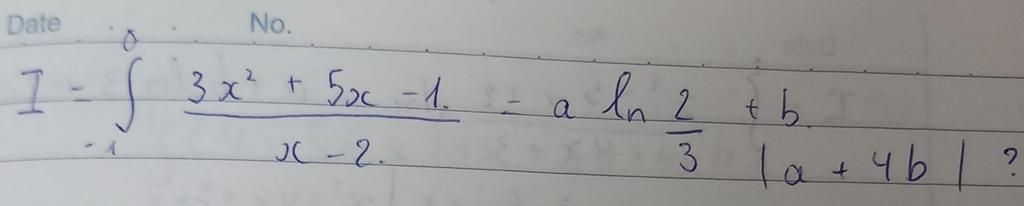 Date No.
I = ∫_{-1}^{0} (3x² + 5x - 1)/(x - 2) = a ln 2/3 + b
|a + 4b| ?